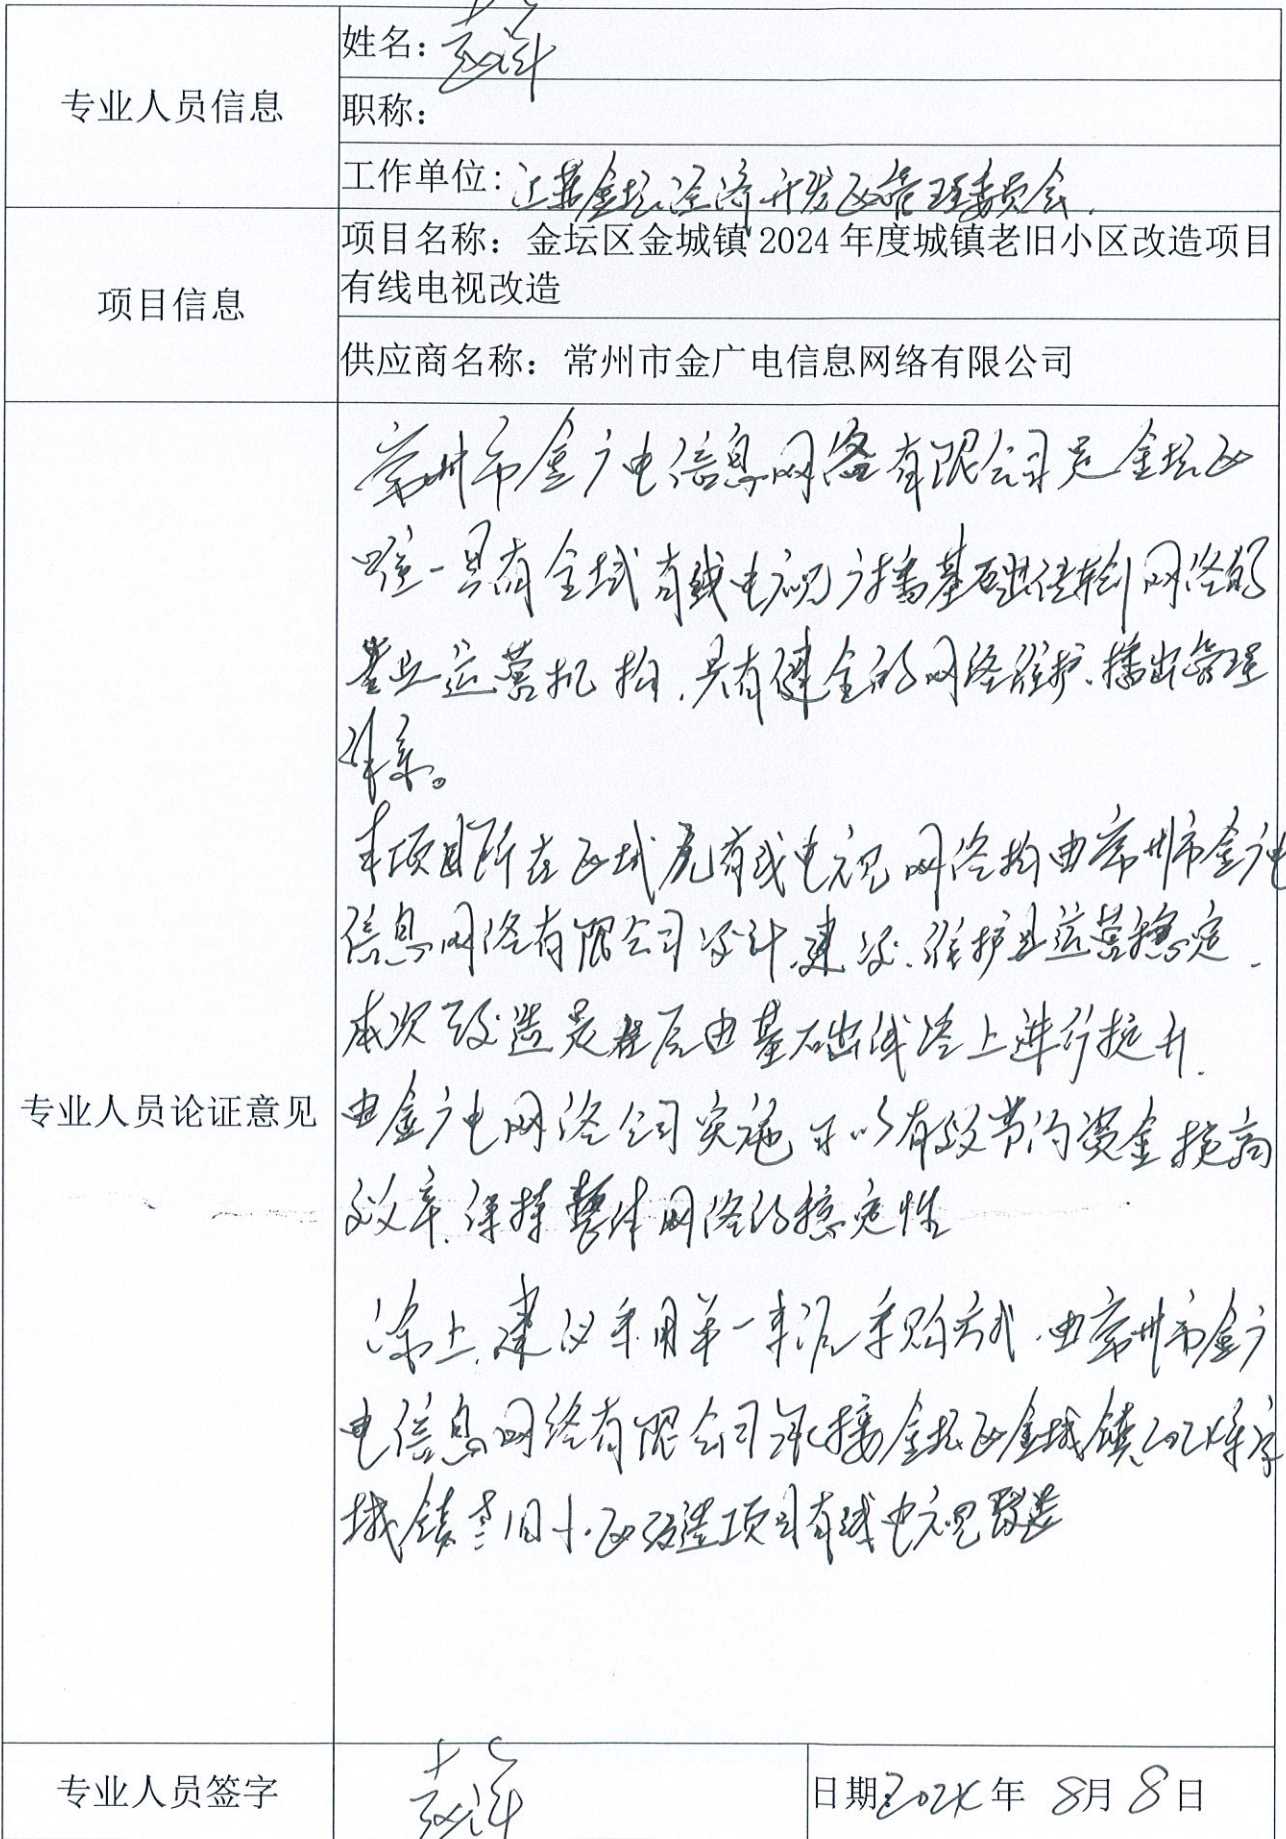 专业人员信息
姓名：
职称：
工作单位：江苏金坛经济开发区管理委员会.
项目信息
项目名称：金坛区金城镇 2024 年度城镇老旧小区改造项目
有线电视改造
供应商名称：常州市金广电信息网络有限公司
专业人员论证意见
常州市金广电信息网络有限公司是金坛区
唯一具有全域有线电视广播基础传输网络的
专业运营机构，具有健全的网络维护、播出管理
体系。
本项目所在区域原有线电视网络均由常州市金广电
信息网络有限公司设计、建设、维护且运营稳定，
本次改造是在原由基础线路上进行提升，
由金广电网络公司实施可以有效节约资金提高
效率，保持整体网络的稳定性
综上，建议采用单一来源采购方式，由常州市金广
电信息网络有限公司承接金坛区金城镇2024年度
城镇老旧小区改造项目有线电视改造
专业人员签字
日期：2024年 8月8日